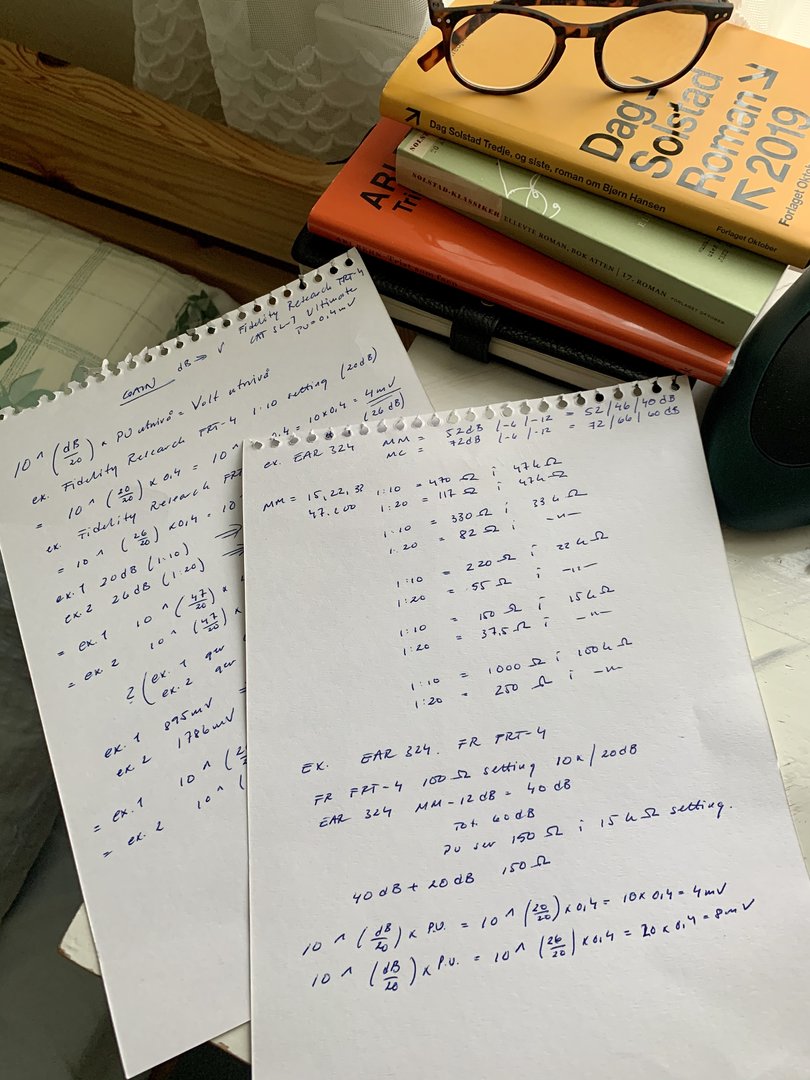 Dag
Solstad
Roman
2019
Forlaget Oktober
Dag Solstad Tredje, og siste, roman om Bjørn Hansen
Forlaget Oktober
SOLSTAD-KLASSIKER ELLEVTE ROMAN, BOK ATTEN | 17. ROMAN FORLAGET OKTOBER
GAIN dB => V Fidelity Research FRT-4
CAT SL-7 Ultimate
PU = 0,4 mV
10 ^ (dB/20) x PU utnivå = Volt utnivå
ex. Fidelity Research FRT-4 1:10 setting (20dB)
= 10 ^ (20/20) x 0,4 = 10 = 10 x 0,4 = 4mV
ex. Fidelity Research FRT (26dB)
= 10 ^ (26/20) x 0,4 = 10
ex. 1 20dB (1:10) =>
ex. 2 26dB (1:20) =>
= ex. 1 10 ^ (47/20) x
= ex. 2 10 ^ (47/20) x
? ( ex. 1 ger
ex. 2 ger
ex. 1 895mV =
ex. 2 1786mV
= ex. 1 10 ^ (
= ex. 2 10 ^ (
ex. EAR 324 MM = 52dB /-6 /-12 = 52/46/40dB
MC = 72dB /-6 /-12 = 72/66/60dB
MM = 15, 22, 33 1:10 = 470 Ω i 47kΩ
47, 100 1:20 = 117 Ω i 47kΩ
1:10 = 330 Ω i 33kΩ
1:20 = 82 Ω i -"-
1:10 = 220 Ω i 22kΩ
1:20 = 55 Ω i -"-
1:10 = 150 Ω i 15kΩ
1:20 = 37,5 Ω i -"-
1:10 = 1000 Ω i 100kΩ
1:20 = 250 Ω i -"-
EX. EAR 324. FR FRT-4
FR FRT-4 100 Ω setting 10x/20dB
EAR 324 MM-12dB = 40dB
Tot. 60dB
PU ser 150 Ω i 15kΩ setting.
40dB + 20dB 150 Ω
10 ^ (dB/20) x P.U. = 10 ^ (20/20) x 0,4 = 10 x 0,4 = 4mV
10 ^ (dB/20) x P.U. = 10 ^ (26/20) x 0,4 = 20 x 0,4 = 8mV